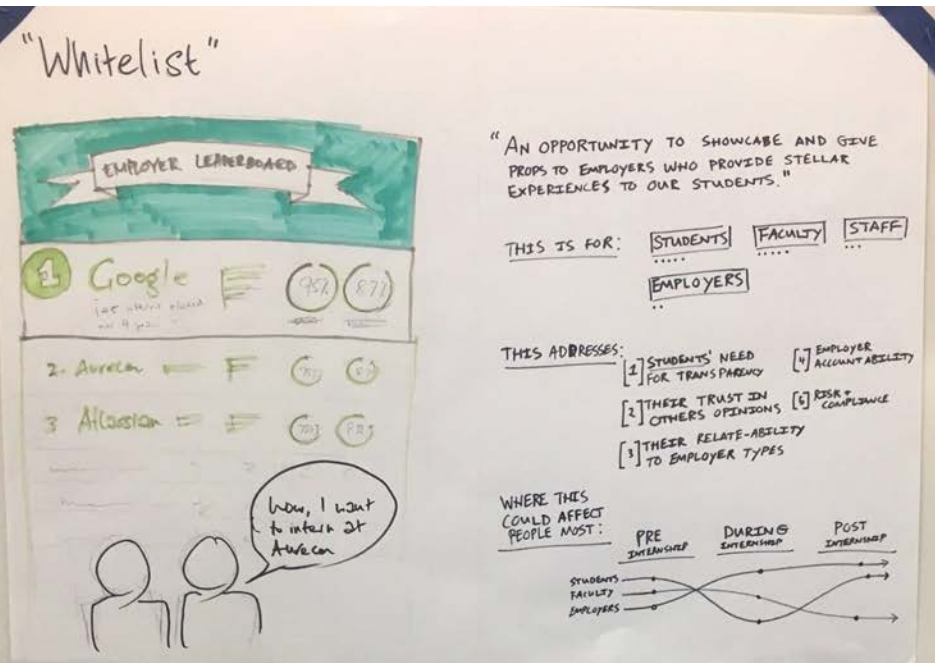 "Whitelist"
EMPLOYER LEADERBOARD
1 Google
95% 87%
2. Aurecon
3 Atlassian
Wow, I want
to intern at
Aurecon
"AN OPPORTUNITY TO SHOWCASE AND GIVE
PROPS TO EMPLOYERS WHO PROVIDE STELLAR
EXPERIENCES TO OUR STUDENTS."
THIS IS FOR: STUDENTS FACULTY STAFF
EMPLOYERS
THIS ADDRESSES:
[1] STUDENTS' NEED
FOR TRANSPARENCY
[2] THEIR TRUST IN
OTHERS OPINIONS
[3] THEIR RELATE-ABILITY
TO EMPLOYER TYPES
[4] EMPLOYER
ACCOUNTABILITY
[5] RISK +
COMPLIANCE
WHERE THIS
COULD AFFECT
PEOPLE MOST:
PRE
INTERNSHIP
DURING
INTERNSHIP
POST
INTERNSHIP
STUDENTS
FACULTY
EMPLOYERS